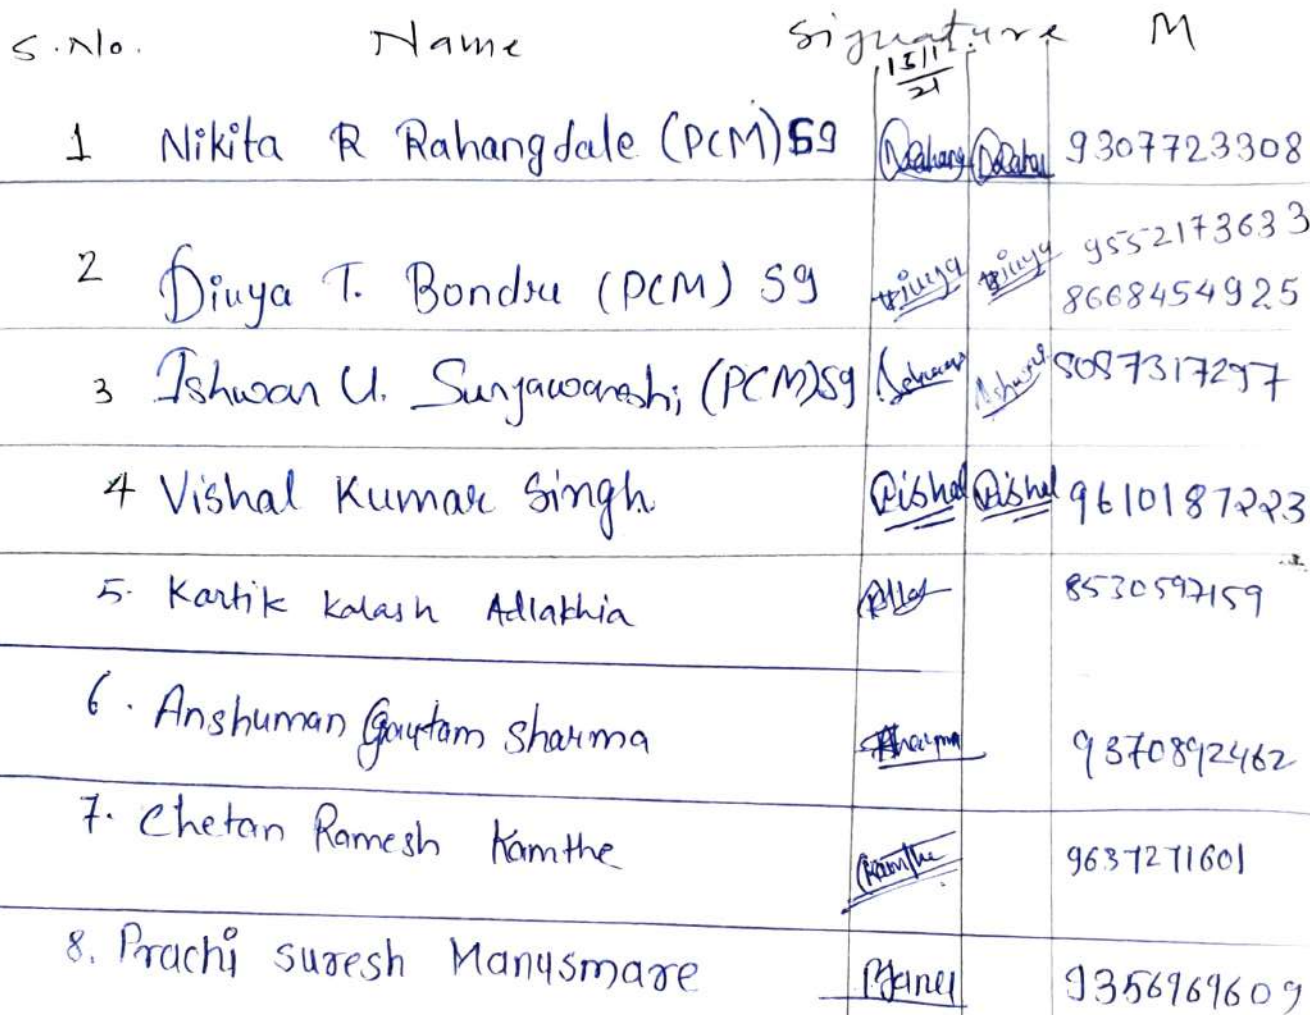 S.No. Name Signature M
15/11/21
1 Nikita R Rahangdale (PCM) 59 9307723308
2 Divya T. Bondre (PCM) 59 Divya Divya 9552173633
8668454925
3 Ishwar U. Suryawanshi (PCM) 59 Ishwar 8087317297
4 Vishal Kumar Singh Vishal Vishal 9610187223
5. Kartik Kalash Adlakhia 8530597159
6. Anshuman Gautam Sharma Sharma 9370892462
7. Chetan Ramesh Kamthe Kamthe 9637271601
8. Prachi suresh Manusmare 9356969609